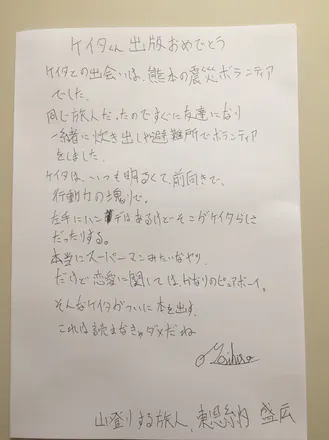 ケイタくん出版おめでとう
ケイタとの出会いは、熊本の震災ボランティア
でした。
同じ旅人だったのですぐに友達になり
一緒に炊き出しや避難所でボランティア
をしました。
ケイタは、いつも明るくて、前向きで、
行動力の塊りで。
左手にハンデはあるけどそこがケイタらしさ
だったりする。
本当にスーパーマンみたいなやつ。
だけど恋愛に関しては、かなりのピュアボーイ。
そんなケイタがついに本を出す。
これは読まなきゃダメだね
山登りする旅人、東恩納 盛広